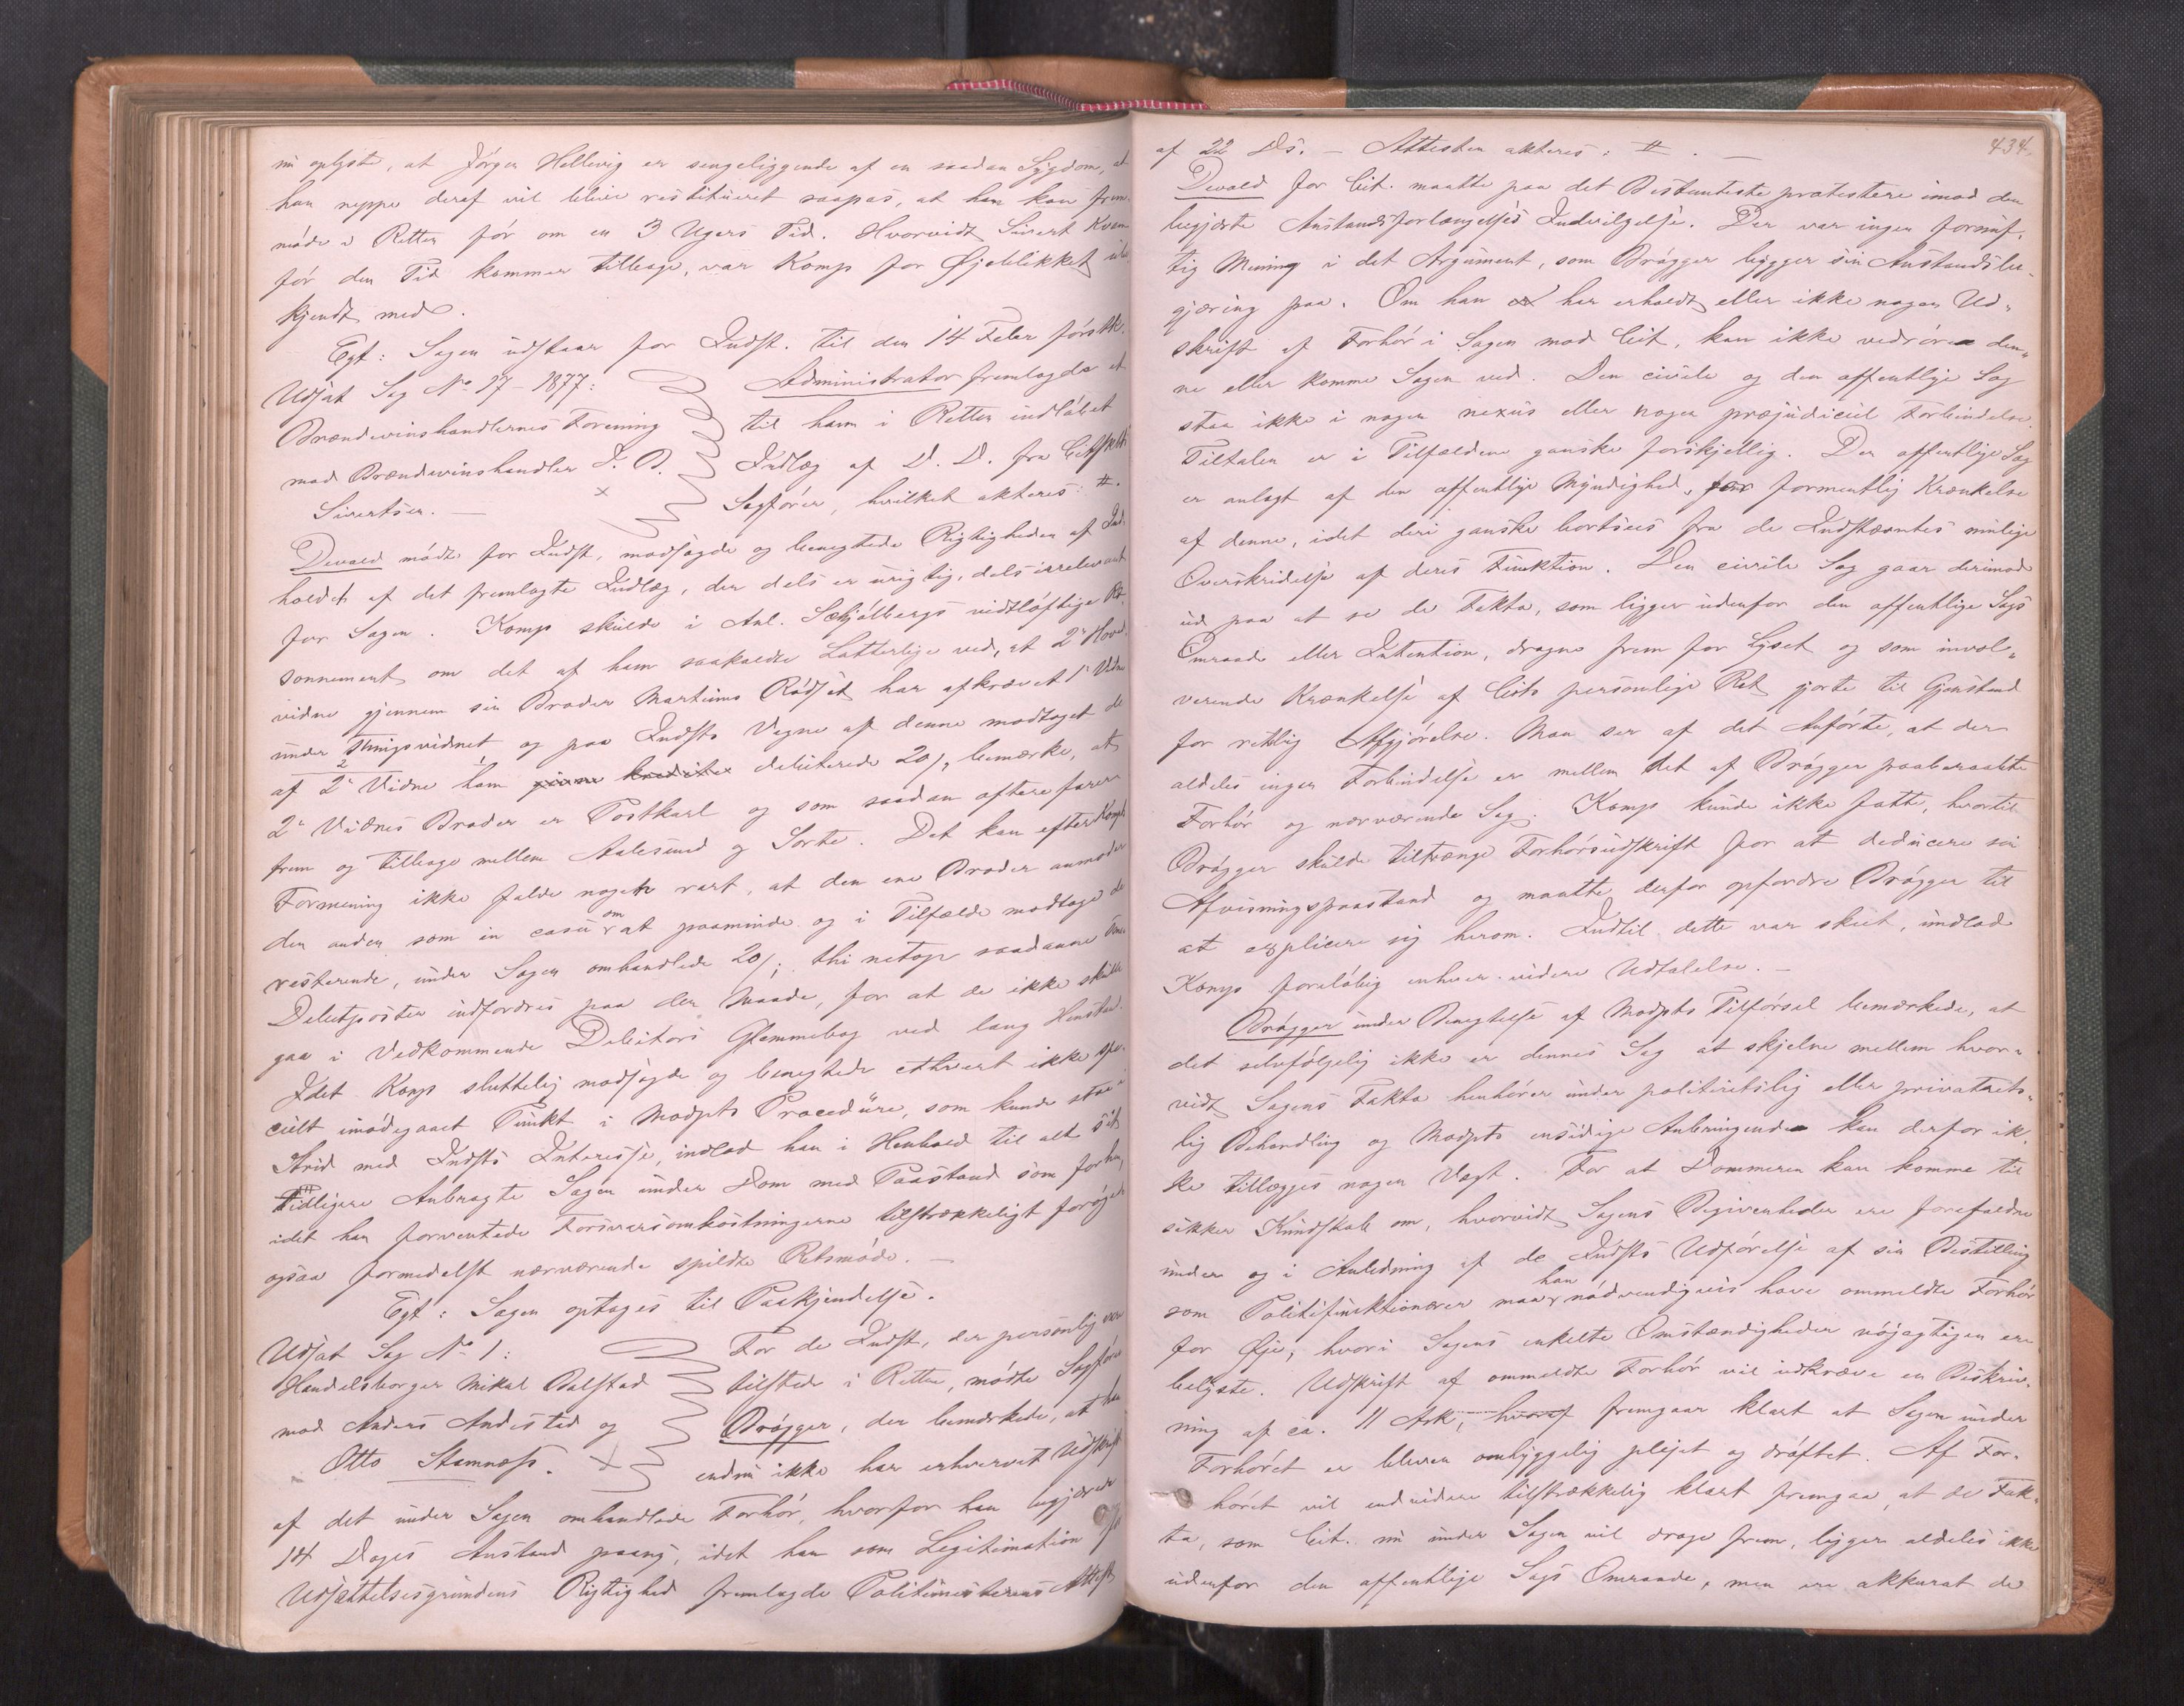 nu oplyste, at Jörgen Hellevig er sengeliggende af en saadan Sygdom, at
han neppe deraf vil blive restitueret saapas, at han kan frem-
möde i Retten för om en 3 Ugers Tid. Hvorvidt Sivert Kvam
för den Tid kommer tilbage, var Komp for Øjeblikket
kjendt med.
Egt: Sagen udstaar for Indst. til den 14 Febr förstk.
Udsat Sag No 17-1877:
Brændevinshandlernes Forening
mod Brændevinshandler J. B.
Sivertsen. —
Administrator fremlagde et
til ham i Retten indlöbet
Indlæg af D. D. fra Citss
Sagförer, hvilket akteres: #.
Devold mödte for Indst, modsagde og benegtede Rigtigheden af Ind-
holdet af det fremlagte Indlæg, der dels er urigtig, dels irrelevant
for Sagen. Komp skulde i Anl. Schjölbergs vidtløftige Ræ-
sonnement om det af ham saakaldte Latterlige ved, at 2' Hoved-
vidne gjennem sin Broder Martinus Rödset har afkrævet 1' Vidne
under Thingsvidnet og paa Indsts Vegne af denne modtaget de
af 2' Vidne ham debiterede 20/, bemærke, at
2' Vidnes Broder er Postkarl og som saadan oftere farer
frem og tilbage mellem Aalesund og Sorte. Det kan efter Komps
Formening ikke falde noget rart, at den ene Broder anmoder
den anden som in casu om at paaminde og i Tilfælde modtage de
resterende, under Sagen omhandlede 20/; thi netop saadanne smaa
Debetposter indfordres paa den Maade, for at de ikke skulle
gaa i Vedkommende Debitors Glemmebog ved lang Henstand.
Idet Komp sluttelig modsagde og benegtede ethvert ikke spe-
cielt imödegaaet Punkt i Modpts Procedüre, som kunde staa i
Strid med Indsts Interesse, indlod han i Henhold til alt sit
Tidligere Anbragte Sagen under Dom med Paastand som forhen,
idet han forventede Forsvarsomkostningerne tilstrækkeligt forøget
ogsaa formedelst nærværende spildte Retsmöde. —
Egt: Sagen optages til Paakjendelse.
Udsat Sag No 1:
Handelsborger Mikal Balstad
mod Anders Andestad og
Otto Stamnæss.
For de Indst, der personlig var
tilstede i Retten, mödte Sagförer
Brögger, der bemærkede, at han
endnu ikke har erhvervet Udskrift
af det under Sagen omhandlede Forhör, hvorfor han begjærede
14 Dages Anstand paany, idet han som Legitimation for
Udsættelsesgrundens Rigtighed fremlagde Politimesterens Attest
434.
af 22 Ds. — Attesten akteres: #. —
Devold for Cit. maatte paa det Bestemteste protestere imod den
begjærte Anstandsforlængelses Indvilgelse. Der var ingen fornuf-
tig Mening i det Argument, som Brögger bygger sin Anstandsbe-
gjæring paa. Om han har erholdt eller ikke nogen Ud-
skrift af Forhör i Sagen mod Cit, kan ikke vedröre den-
ne eller komme Sagen ved. Den civile og den offentlige Sag
staa ikke i nogen nexus eller nogen præjudiciel Forbindelse.
Tiltalen er i Tilfældene ganske forskjellig. Den offentlige Sag
er anlagt af den offentlige Myndighed, for formentlig Krænkelse
af denne, idet deri ganske bortsees fra de Indstævntes mulige
Overskridelse af deres Funktion. Den civile Sag gaar derimod
ud paa at se de Fakta, som ligger udenfor den offentlige Sags
Omraade eller Intention, dragne frem for Lyset og som invol-
verende Krænkelse af Cits personlige Ret gjorte til Gjenstand
for retslig Afgjörelse. Man ser af det Anförte, at der
aldeles ingen Forbindelse er mellem det af Brögger paaberaabte
Forhör og nærværende Sag. Komp kunde ikke fatte, hvortil
Brögger skulde tiltrænge Forhörsudskrift for at deducere sin
Afvisningspaastand og maatte derfor opfordre Brögger til
at explicere sig herom. Indtil dette var skeet, undlod
Komp forelöbig enhver videre Udtalelse. —
Brögger under Benegtelse af Modpts Tilförsel bemærkede, at
det selvfölgelig ikke er dennes Sag at skjelne mellem hvor-
vidt Sagens Fakta henhörer under politiretslig eller privatrets-
lig Behandling og Modpts ensidige Anbringende kan derfor ik-
ke tillægges nogen Vægt. For at Dommeren kan komme til
sikker Kundskab om, hvorvidt Sagens Begivenheder ere forefaldne
under og i Anledning af de Indsts Udförelse af sin Bestilling
som Politifunktionærer maa han nödvendigvis have ommeldte Forhör
for Øje, hvori Sagens enkelte Omstændigheder nöjagtigen ere
belyste. Udskrift af ommeldte Forhör vil udkræve en Beskriv-
ning af ca. 11 Ark, hvoraf fremgaar klart at Sagen under
Forhöret er bleven omhyggelig plejet og dröftet. Af For-
höret vil endvidere tilstrækkelig klart fremgaa, at de Fak-
ta, som Cit. nu under Sagen vil drage frem, ligger aldeles ikke
udenfor den offentlige Sags Omraade, men ere akkurat de